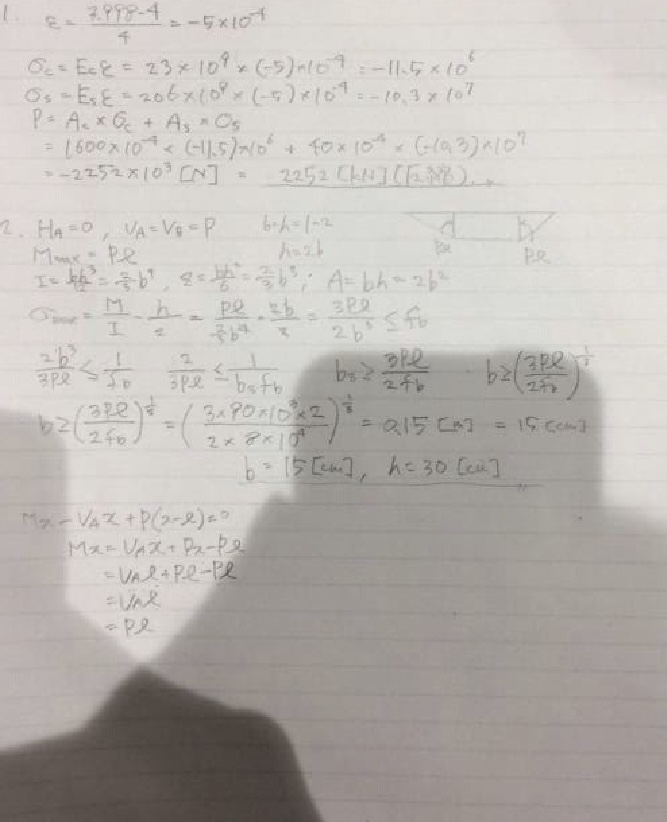 1. ε = 3.998-4/4 = -5×10⁻⁴
σc = Ecε = 23×10⁹×(-5)×10⁻⁴ = -11.5×10⁶
σs = Esε = 206×10⁹×(-5)×10⁻⁴ = -10.3×10⁷
P = Ac×σc + As×σs
= 1600×10⁻⁴×(-11.5)×10⁶ + 40×10⁻⁴×(-10.3)×10⁷
= -2252×10³ [N] = 2252 [kN]
2. HA=0, VA=VB=P b:h=1:2
Mmax = Pl h=2b
I = bh³/12 = 2/3 b⁴, z = bh²/6 = 2/3 b³; A = bh = 2b²
Pl Pl
M/I · h/2 = Pl/(2/3 b⁴) = 3Pl/2b³ ≤ fb
2b³/3Pl ≤ 1/fb 2/3Pl ≤ 1/b³fb b³ ≥ 3Pl/2fb b ≥ (3Pl/2fb)^⅓
b ≥ (3Pl/2fb)^⅓ = (3×90×10³×2/2×8×10⁶)^⅓ = 0.15 [m] = 15 [cm]
b = 15 [cm], h = 30 [cm]
Mx - VAx + P(x-l) = 0
Mx = VAx + Px - Pl
= VAl + Pl - Pl
= VAl
= Pl